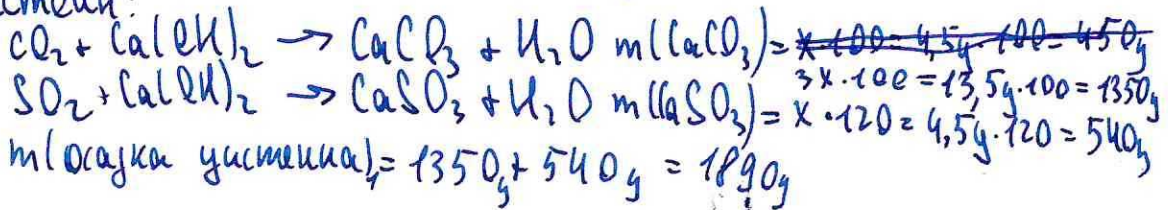 CO₂ + Ca(OH)₂ → CaCO₃ + H₂O m(CaCO₃) = x·100 = 4,5y·100 = 450y
3x·100 = 13,5y·100 = 1350y
SO₂ + Ca(OH)₂ → CaSO₃ + H₂O m(CaSO₃) = x·120 = 4,5y·120 = 540y
m(осадка цистеина) = 1350y + 540y = 1890y